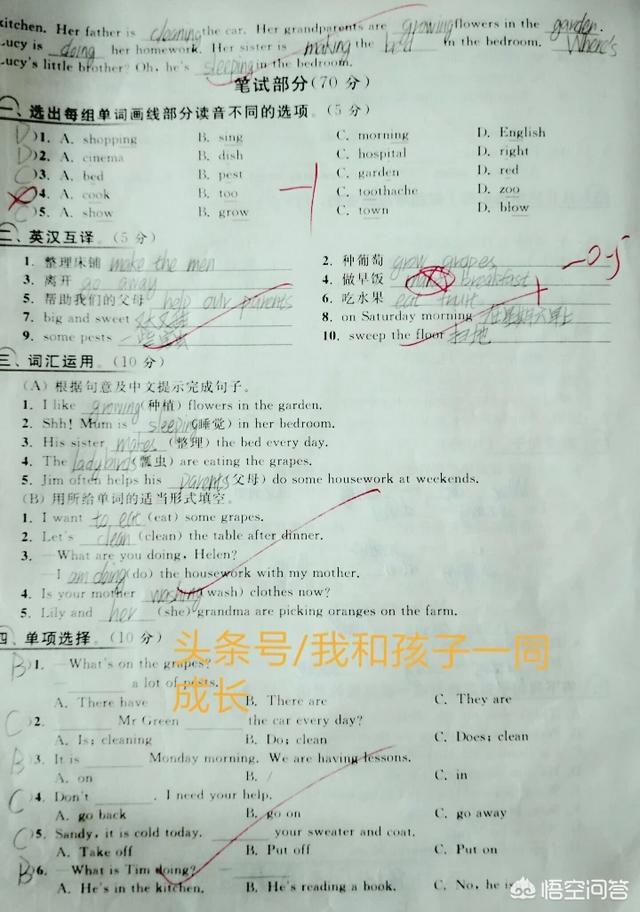 kitchen. Her father is cleaning the car. Her grandparents are growing flowers in the garden.
Lucy is doing her homework. Her sister is making the bed in the bedroom. Where's
Lucy's little brother? Oh, he's sleeping in the bedroom.
笔试部分(70 分)
一、选出每组单词画线部分读音不同的选项。(5 分)
(D)1. A. shopping B. sing C. morning D. English
(D)2. A. cinema B. dish C. hospital D. right
(C)3. A. bed B. pest C. garden D. red
4. A. cook B. too C. toothache D. zoo
(C)5. A. show B. grow C. town D. blow
-1
二、英汉互译。(5 分)
1. 整理床铺 make the men 2. 种葡萄 grow grapes
-0.5
3. 离开 go away 4. 做早饭 breakfast
5. 帮助我们的父母 help our parents 6. 吃水果 eat fruit
7. big and sweet 又大又甜 8. on Saturday morning 在星期六早上
9. some pests 一些害虫 10. sweep the floor 扫地
三、词汇运用。(10 分)
(A) 根据句意及中文提示完成句子。
1. I like growing (种植) flowers in the garden.
2. Shh! Mum is sleeping (睡觉) in her bedroom.
3. His sister makes (整理) the bed every day.
4. The ladybirds (瓢虫) are eating the grapes.
5. Jim often helps his parents (父母) do some housework at weekends.
(B) 用所给单词的适当形式填空。
1. I want to eat (eat) some grapes.
2. Let's clean (clean) the table after dinner.
3. —What are you doing, Helen?
—I am doing (do) the housework with my mother.
4. Is your mother washing (wash) clothes now?
5. Lily and her (she) grandma are picking oranges on the farm.
四、单项选择。(10 分)
(B)1. —What's on the grapes?
—________ a lot of pests.
A. There have B. There are C. They are
(C)2. ________ Mr Green ________ the car every day?
A. Is; cleaning B. Do; clean C. Does; clean
(B)3. It is ________ Monday morning. We are having lessons.
A. on B. / C. in
(C)4. Don't ________. I need your help.
A. go back B. go on C. go away
(C)5. Sandy, it is cold today. ________ your sweater and coat.
A. Take off B. Put off C. Put on
(B)6. —What is Tim doing? —________
A. He's in the kitchen. B. He's reading a book. C. No, he is
头条号/我和孩子一同
成长
悟空问答